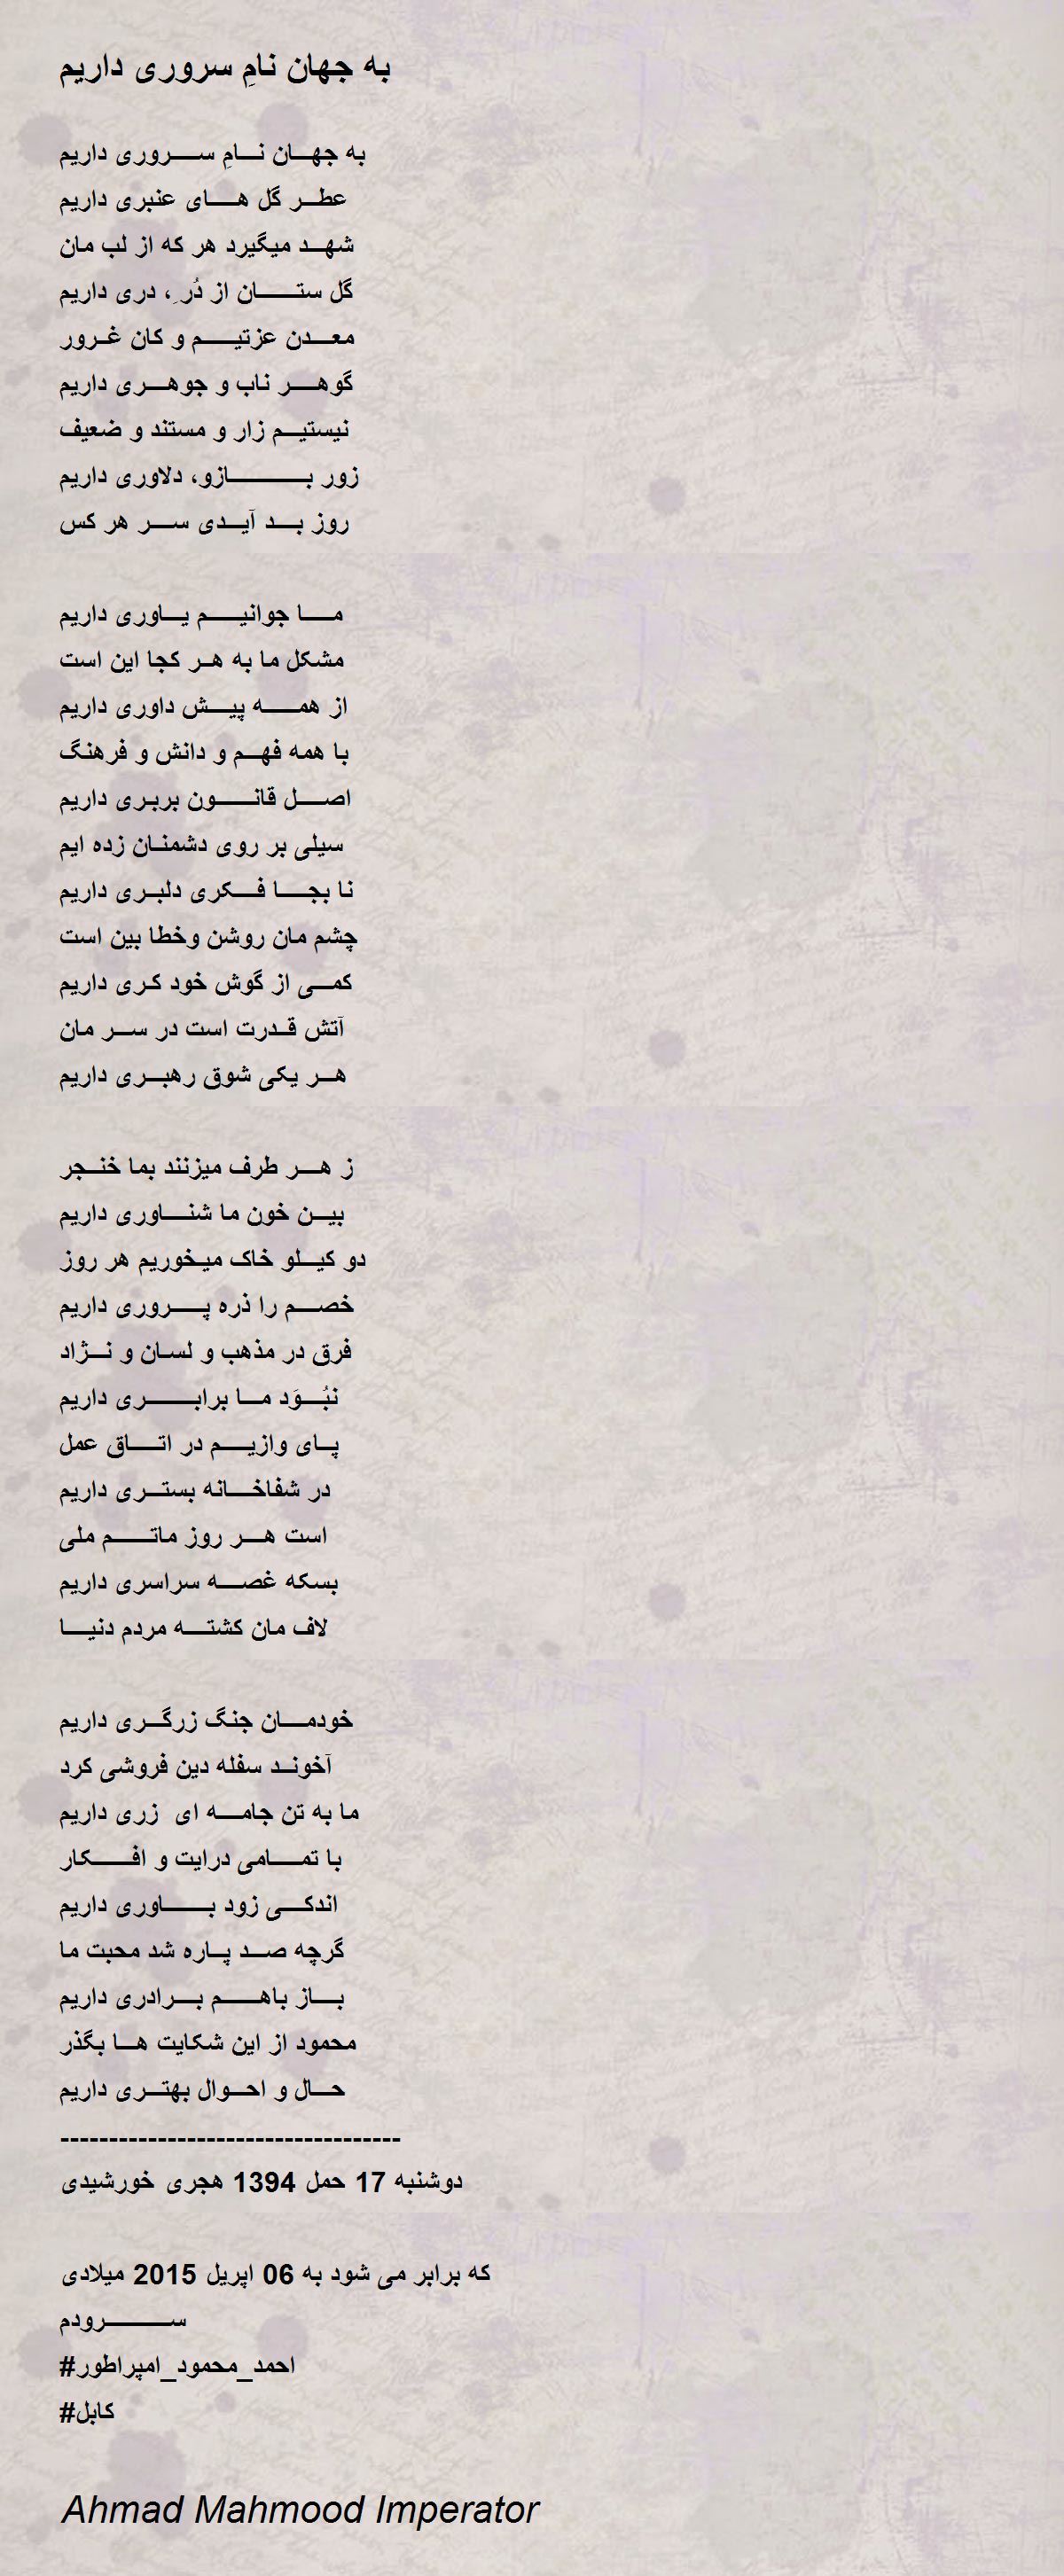 به جهان نامِ سروری داریم
به جهـــان نـــامِ ســـروری داریم
عطـــر گل هـــای عنبری داریم
شهـــد میگیرد هر که از لب مان
گل ستـــان از دُر ِ، دری داریم
معـــدن عزتیـــم و کان غـرور
گوهـــر ناب و جوهـــری داریم
نیستیـــم زار و مستند و ضعیف
زور بـــازو، دلاوری داریم
روز بـــد آیـــدی ســـر هر کس
مـــا جوانیـــم یـــاوری داریم
مشکل ما به هـر کجا این است
از همـــه پیـــش داوری داریم
با همه فهـــم و دانش و فرهنگ
اصـــل قانـــون بربـری داریم
سیلی بر روی دشمنـان زده ایم
نا بجـــا فـــکری دلبـری داریم
چشم مان روشن وخطا بین است
کمـــی از گوش خود کـری داریم
آتش قـدرت است در ســـر مان
هـــر یکی شوق رهبـــری داریم
ز هـــر طرف میزنند بما خنـجر
بیـــن خون ما شنـــاوری داریم
دو کیـــلو خاک میـخوریم هر روز
خصـــم را ذره پـــروری داریم
فرق در مذهب و لسـان و نـــژاد
نبُـــوَد مـــا برابـــری داریم
پـــای وازیـــم در اتـــاق عمل
در شفاخـــانه بستـــری داریم
است هـــر روز ماتـــم ملی
بسکه غصـــه سراسری داریم
لاف مان کشتـــه مردم دنیـــا
خودمـــان جنگ زرگـــری داریم
آخونـد سفله دین فروشی کرد
ما به تن جامـــه ای  زری داریم
با تمـــامی درایت و افـــکار
اندکـــی زود بـــاوری داریم
گرچه صـــد پـــاره شد محبت ما
بـــاز باهـــم بـــرادری داریم
محمود از این شکایت هـــا بگذر
حـــال و احـــوال بهتـــری داریم
-----------------------------------
دوشنبه 17 حمل 1394 هجری خورشیدی
که برابر می شود به 06 اپریل 2015 میلادی
ســـرودم
#احمد_محمود_امپراطور
#کابل
Ahmad Mahmood Imperator